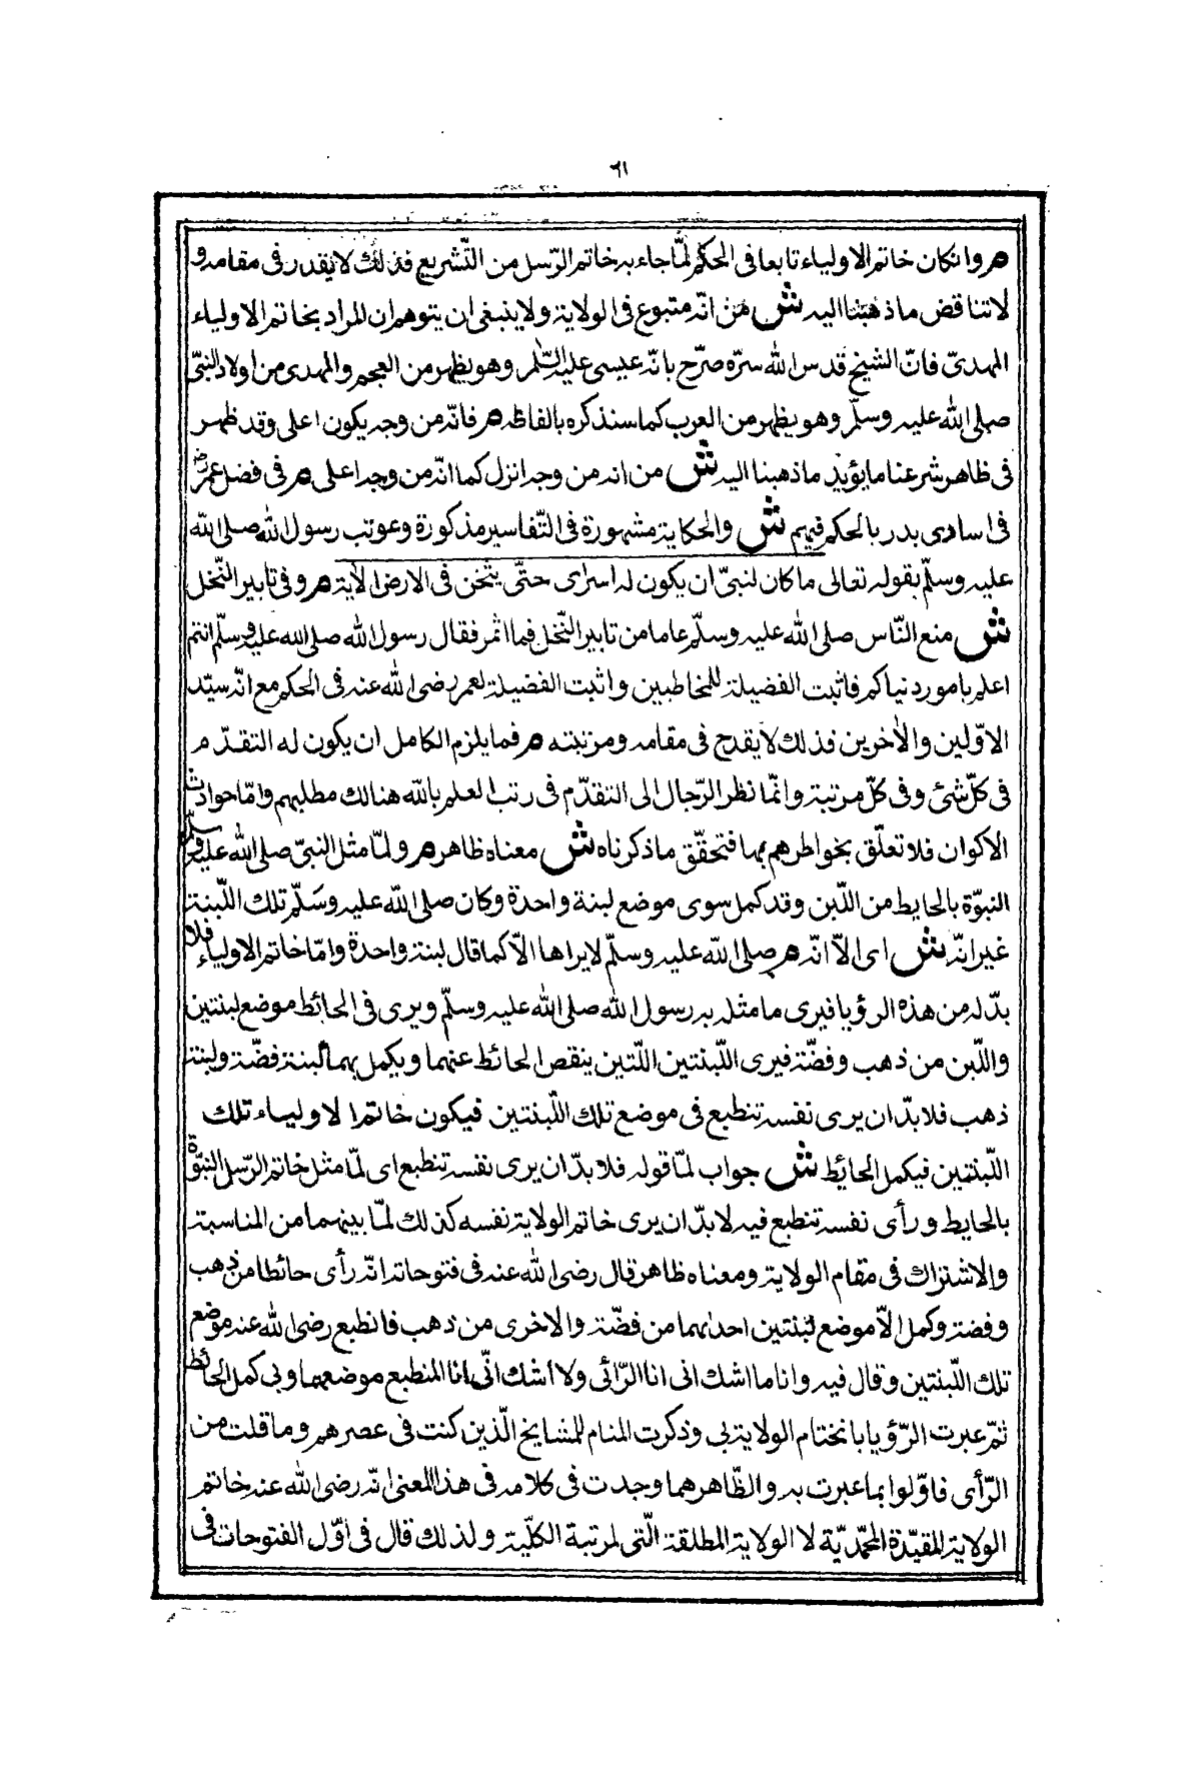 ٦١
م وانكان خاتم الاولياء تابعا فى الحكم لمّا جاء به خاتم الرّسل من التّشريع فذلك لا يقدر فى مقامه و
لا تناقض ما ذهبنا اليه ش من انّه متبوع فى الولاية ولا ينبغى ان يتوهم ان المراد بخاتم الاولياء
المهدىّ فانّ الشيخ قدس الله سرّه صرّح بانّه عيسى عليه السّلم وهو يظهر من العجم والمهدى من اولاد النبىّ
صلى الله عليه وسلّم وهو يظهر من العرب كما سنذكره بالفاظه م فانّه من وجه يكون اعلى وقد ظهر
فى ظاهر شرعنا ما يؤيد ما ذهبنا اليه ش من انه من وجه انزل كما انّه من وجه اعلى م فى فضل عمر رض
فى اسارى بدر بالحكم فيهم ش والحكاية مشهورة فى التّفاسير مذكورة وعوتب رسول الله صلى الله
عليه وسلّم بقوله تعالى ما كان لنبىّ ان يكون له اسرى حتّى يثخن فى الارض الآية م وفى تابير النّخل
ش منع النّاس صلى الله عليه وسلّم عاما من تابير النّخل فما اثمر فقال رسول الله صلى الله عليه وسلّم انتم
اعلم بامور دنياكم فاثبت الفضيلة للمخاطبين واثبت الفضيلة لعمر رضى الله عنه فى الحكم مع انّه سيّد
الاوّلين والآخرين فذلك لا يقدح فى مقامه ومرتبته م فما يلزم الكامل ان يكون له التقدّم
فى كلّ شئ وفى كلّ مرتبة وانّما نظر الرّجال الى التقدّم فى رتب العلم بالله هنالك مطلبهم وامّا حوادث
الاكوان فلا تعلّق بخواطرهم بها فتحقّق ما ذكرناه ش معناه ظاهر م ولمّا مثل النبىّ صلى الله عليه وسلّم
النبوّة بالحايط من اللّبن وقد كمل سوى موضع لبنة واحدة وكان صلى الله عليه وسَلّم تلك اللّبنة
غير انّه ش اى الاّ انّه م صلى الله عليه وسلّم لا يراها الاّ كما قال لبنة واحدة وامّا خاتم الاولياء فلا
بدّ له من هذه الرؤيا فيرى ما مثله به رسول الله صلى الله عليه وسلّم ويرى فى الحائط موضع لبنتين
واللّبن من ذهب وفضّة فيرى اللّبنتين اللّتين ينقص الحائط عنهما ويكمل بهما لبنة فضّة ولبنة
ذهب فلا بدّ ان يرى نفسه تنطبع فى موضع تلك اللّبنتين فيكون خاتم الاولياء تلك
اللّبنتين فيكمل الحائط ش جواب لمّا قوله فلا بدّ ان يرى نفسه تنطبع اى لمّا مثل خاتم الرّسل النبوّة
بالحايط ورأى نفسه تنطبع فيه لا بدّ ان يرى خاتم الولاية نفسه كذلك لمّا بينهما من المناسبة
والاشتراك فى مقام الولاية ومعناه ظاهر قال رضى الله عنه فى فتوحاته انّه رأى حائطا من ذهب
وفضة وكمل الاّ موضع لبنتين احدٰيهما من فضّة والاخرى من ذهب فانطبع رضى الله عنه موضع
تلك اللّبنتين وقال فيه وانا ما اشك انى انا الرّائى ولا اشك انّى انا المنطبع موضعهما وبى كمل الحائط
ثمّ عبرت الرّؤيا بانختام الولاية بى وذكرت المنام للمشايخ الّذين كنت فى عصرهم وما قلت من
الرّأى فاوّلوا بما عبرت به والظّاهر مما وجدت فى كلامه فى هذا المعنى انّه رضى الله عنه خاتم
الولاية المقيّدة المحمّديّة لا الولاية المطلقة الّتى لمرتبة الكلّية ولذلك قال فى اوّل الفتوحات فى